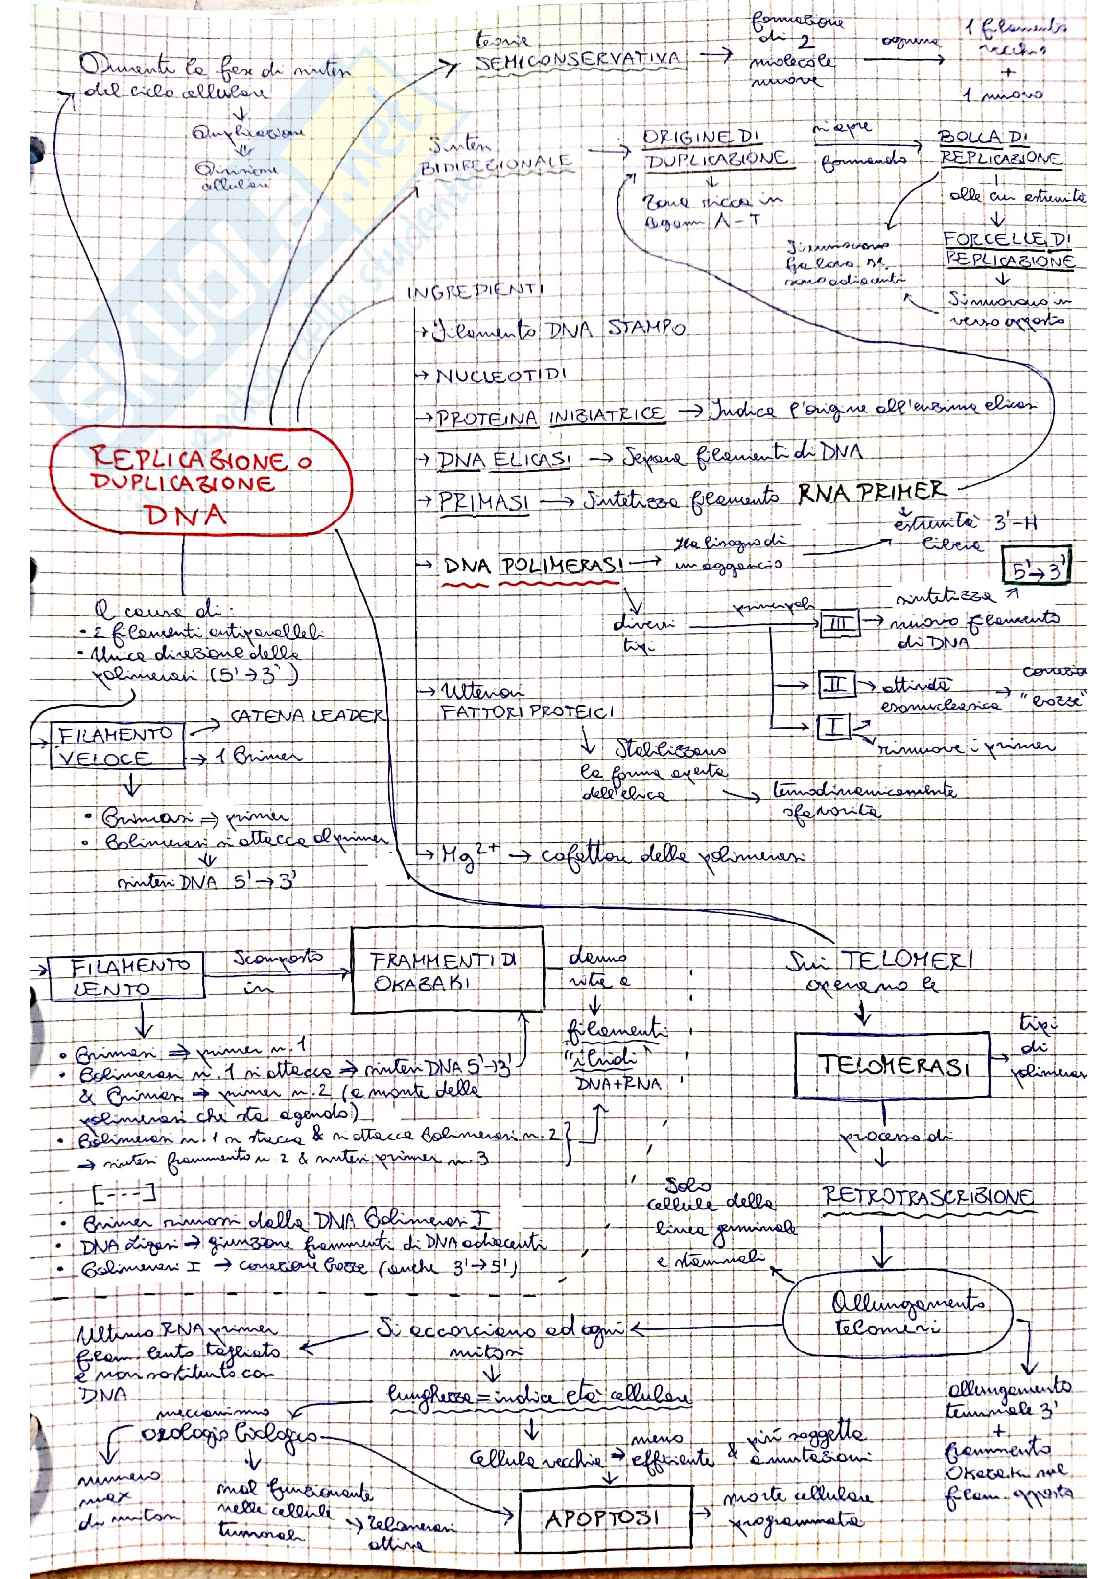 Durante la fase di sintesi
del ciclo cellulare
Duplicazione
Divisione
cellulare
teoria
SEMICONSERVATIVA
formazione
di 2
molecole
nuove
ognuna
1 filamento
vecchio
+
1 nuovo
Sintesi
BIDIREZIONALE
ORIGINE DI
DUPLICAZIONE
Zona ricca in
legami A-T
si apre
formando
BOLLA DI
REPLICAZIONE
alle cui estremità
FORCELLE DI
REPLICAZIONE
Si muovono in
verso opposto
Si uniscono
fra loro se
sono adiacenti
INGREDIENTI
→ Filamento DNA STAMPO
→ NUCLEOTIDI
→ PROTEINA INIZIATRICE → Indica l'origine all'enzima elicasi
→ DNA ELICASI → Separa filamenti di DNA
→ PRIMASI → Sintetizza filamento RNA PRIMER
→ DNA POLIMERASI → Ha bisogno di
un aggancio
estremità 3'-H
libera
5'→3'
diversi
tipi
principali
III → sintetizza
nuovo filamento
di DNA
II → attività
esonucleasica → correzione
"bozze"
I
rimuove i primer
→ Ulteriori
FATTORI PROTEICI
Stabilizzano
la forma aperta
dell'elica
termodinamicamente
sfavorita
→ Mg2+ → cofattore della polimerasi
REPLICAZIONE o
DUPLICAZIONE
DNA
A causa di:
• 2 filamenti antiparalleli
• Unica direzione della
polimerasi (5'→3')
FILAMENTO
VELOCE
→ CATENA LEADER
→ 1 Primer
• Primasi ⇒ primer
• Polimerasi si attacca al primer
sintesi DNA 5'→3'
FILAMENTO
LENTO
Scomposto
in
FRAMMENTI DI
OKAZAKI
danno
vita a
filamenti
"ibridi"
DNA+RNA
• Primasi ⇒ primer n.1
• Polimerasi n.1 si attacca ⇒ sintesi DNA 5'→3'
& Primasi ⇒ primer n.2 (a monte della
polimerasi che sta agendo)
• Polimerasi n.1 si stacca & si attacca Polimerasi n.2
→ sintesi frammento n.2 & sintesi primer n.3
[---]
• Primer rimossi dalla DNA Polimerasi I
• DNA Ligasi → giunzione frammenti di DNA adiacenti
• Polimerasi I → correzione bozze (anche 3'→5')
Sui TELOMERI
operano le
TELOMERASI
tipi
di
polimerasi
processo di
RETROTRASCRIZIONE
Allungamento
telomeri
Solo
cellule della
linea germinale
e staminali
allungamento
terminale 3'
+
frammento
Okazaki sul
filam. opposto
Si accorciano ad ogni
mitosi
Ultimo RNA primer
filam. lento tagliato
e non sostituito con
DNA
lunghezza = indice età cellulare
meccanismo
orologio biologico
numero
max
di mitosi
mal funzionante
nelle cellule
tumorali → Telomerasi
attiva
Cellula vecchia → meno
efficiente & più soggetta
a mutazioni
APOPTOSI → morte cellulare
programmata